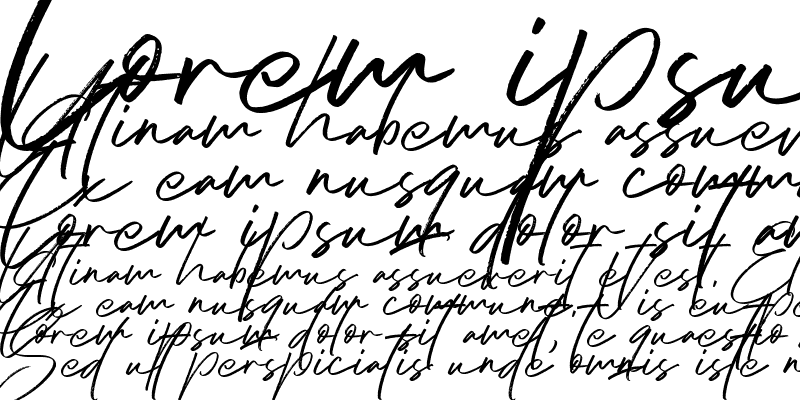 Lorem ipsu
Etinam habemus assuever
Ex eam nusquam commu
Lorem ipsum dolor sit am
Etinam habemus assueverit et est. El
Ex eam nusquam commune. t is eu pe
Lorem ipsum dolor sit amet, te quaestio
Sed ut perspiciatis unde omnis iste n